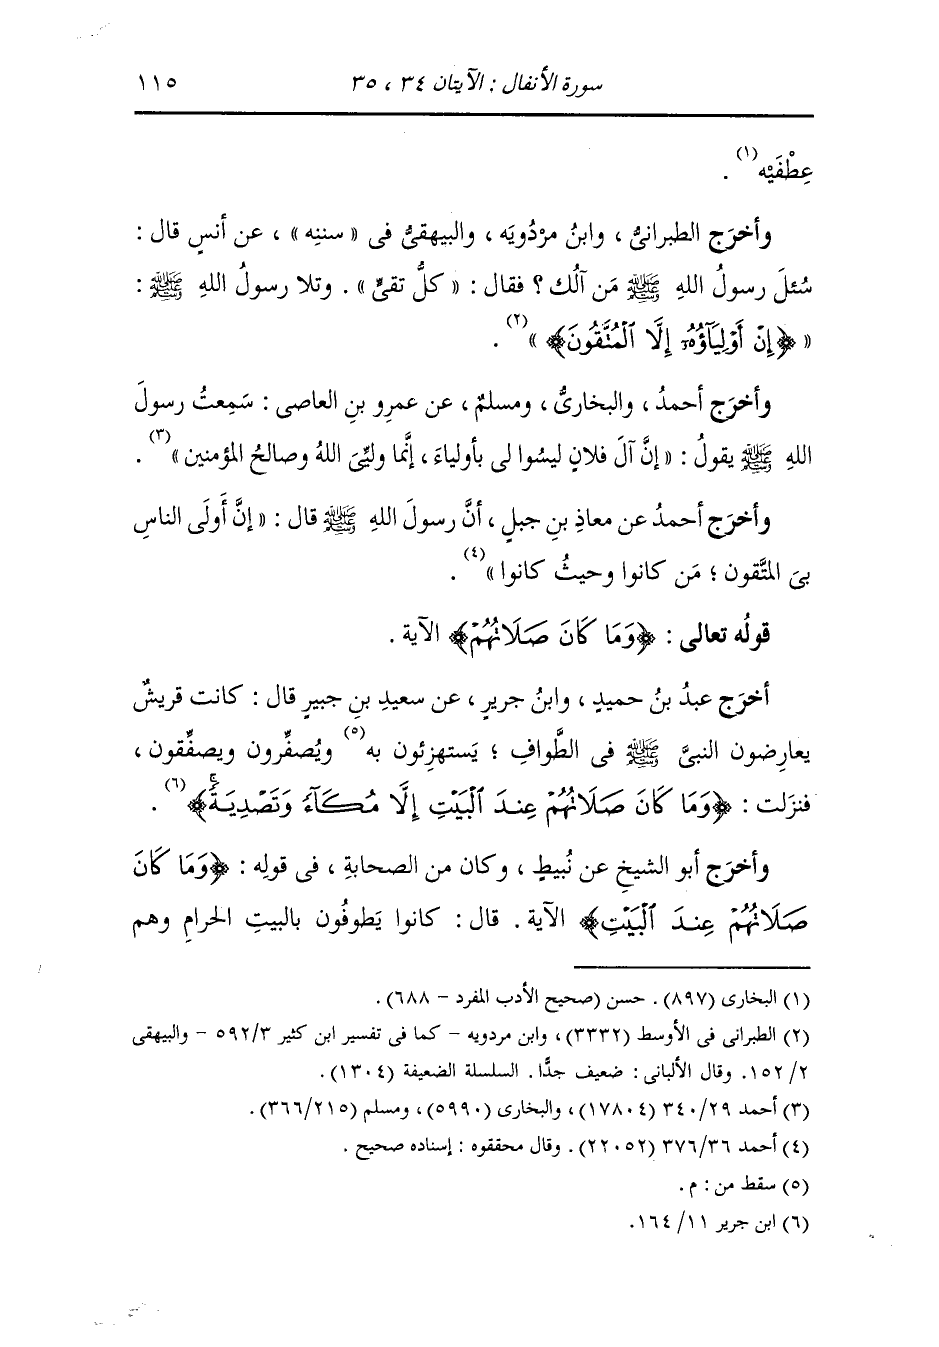 سورة الأنفال : الآيتان ٣٤ ، ٣٥ ١١٥
عِطْفَيْه(١) .
وأخرَج الطبرانىُّ ، وابنُ مرْدُويَه ، والبيهقىُّ فى « سننِه » ، عن أنسٍ قال :
سُئلَ رسولُ اللهِ ﷺ مَن آلُك ؟ فقال : « كلُّ تقىٍّ » . وتلا رسولُ اللهِ ﷺ :
« ﴿إِنْ أَوْلِيَآؤُهُۥٓ إِلَّا ٱلْمُتَّقُونَ﴾ »(٢) .
وأخرَج أحمدُ ، والبخارىُّ ، ومسلمٌ ، عن عمرِو بنِ العاصى : سَمِعتُ رسولَ
اللهِ ﷺ يقولُ : « إنَّ آلَ فلانٍ ليسُوا لى بأولياءَ ، إنَّما وليِّىَ اللهُ وصالحُ المؤمنين »(٣) .
وأخرَج أحمدُ عن معاذِ بنِ جبلٍ ، أنَّ رسولَ اللهِ ﷺ قال : « إنَّ أَولَى الناسِ
بىَ المتَّقون ؛ مَن كانوا وحيثُ كانوا »(٤) .
قولُه تعالى : ﴿وَمَا كَانَ صَلَاتُهُمْ﴾ الآية .
أخرَج عبدُ بنُ حميدٍ ، وابنُ جريرٍ ، عن سعيدِ بنِ جبيرٍ قال : كانت قريشٌ
يعارِضون النبىَّ ﷺ فى الطَّوافِ ؛ يَستهزِئون به(٥) ويُصفِّرون ويصفِّقون ،
فنزَلت : ﴿وَمَا كَانَ صَلَاتُهُمْ عِندَ ٱلْبَيْتِ إِلَّا مُكَآءً وَتَصْدِيَةً﴾(٦) .
وأخرَج أبو الشيخِ عن نُبيطٍ ، وكان من الصحابةِ ، فى قولِه : ﴿وَمَا كَانَ
صَلَاتُهُمْ عِندَ ٱلْبَيْتِ﴾ الآية . قال : كانوا يَطوفُون بالبيتِ الحرامِ وهم
(١) البخارى (٨٩٧) . حسن (صحيح الأدب المفرد - ٦٨٨) .
(٢) الطبرانى فى الأوسط (٣٣٣٢) ، وابن مردويه - كما فى تفسير ابن كثير ٥٩٢/٣ - والبيهقى
٢/ ١٥٢. وقال الألبانى : ضعيف جدًّا . السلسلة الضعيفة (١٣٠٤) .
(٣) أحمد ٣٤٠/٢٩ (١٧٨٠٤) ، والبخارى (٥٩٩٠) ، ومسلم (٣٦٦/٢١٥) .
(٤) أحمد ٣٧٦/٣٦ (٢٢٠٥٢) . وقال محققوه : إسناده صحيح .
(٥) سقط من : م .
(٦) ابن جرير ١١/ ١٦٤.